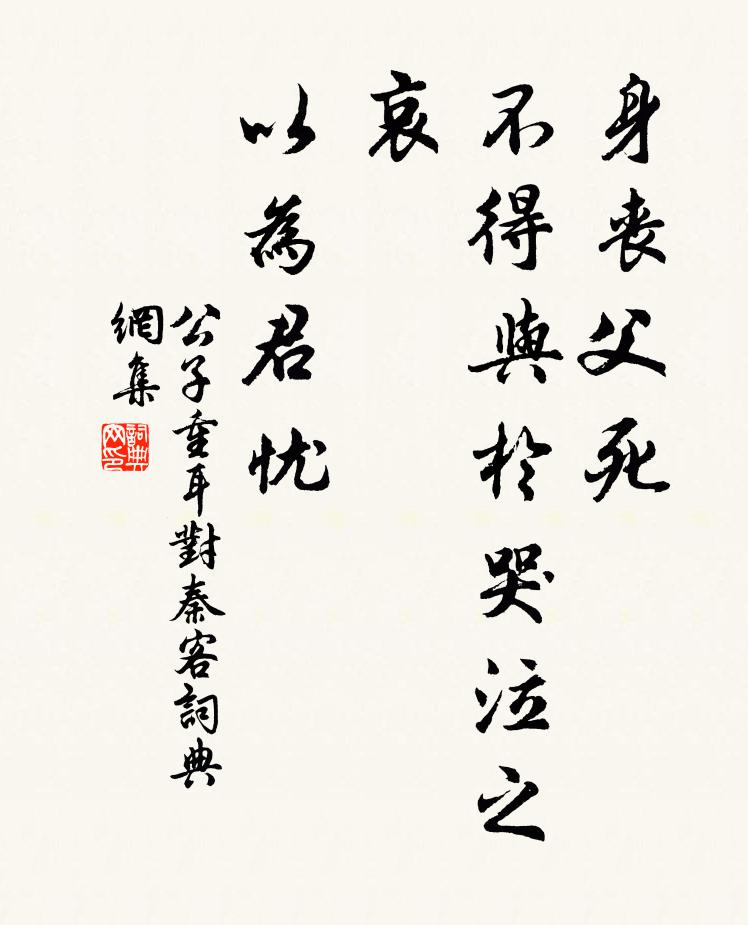 身喪父死
不得與於哭泣之
哀
以為君忧
公子重耳對秦客詞典
網集
詞典
网印